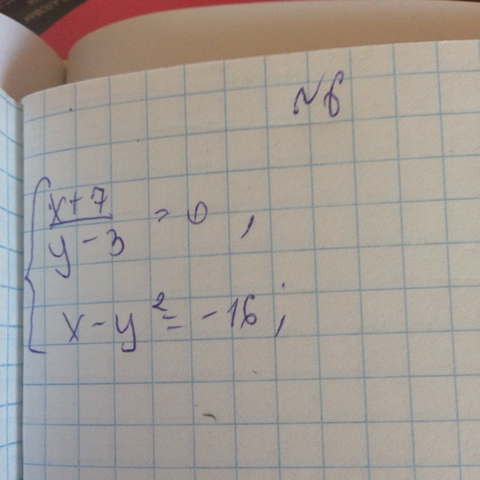 №6
x+7
y-3 = 0,
x-y²=-16;